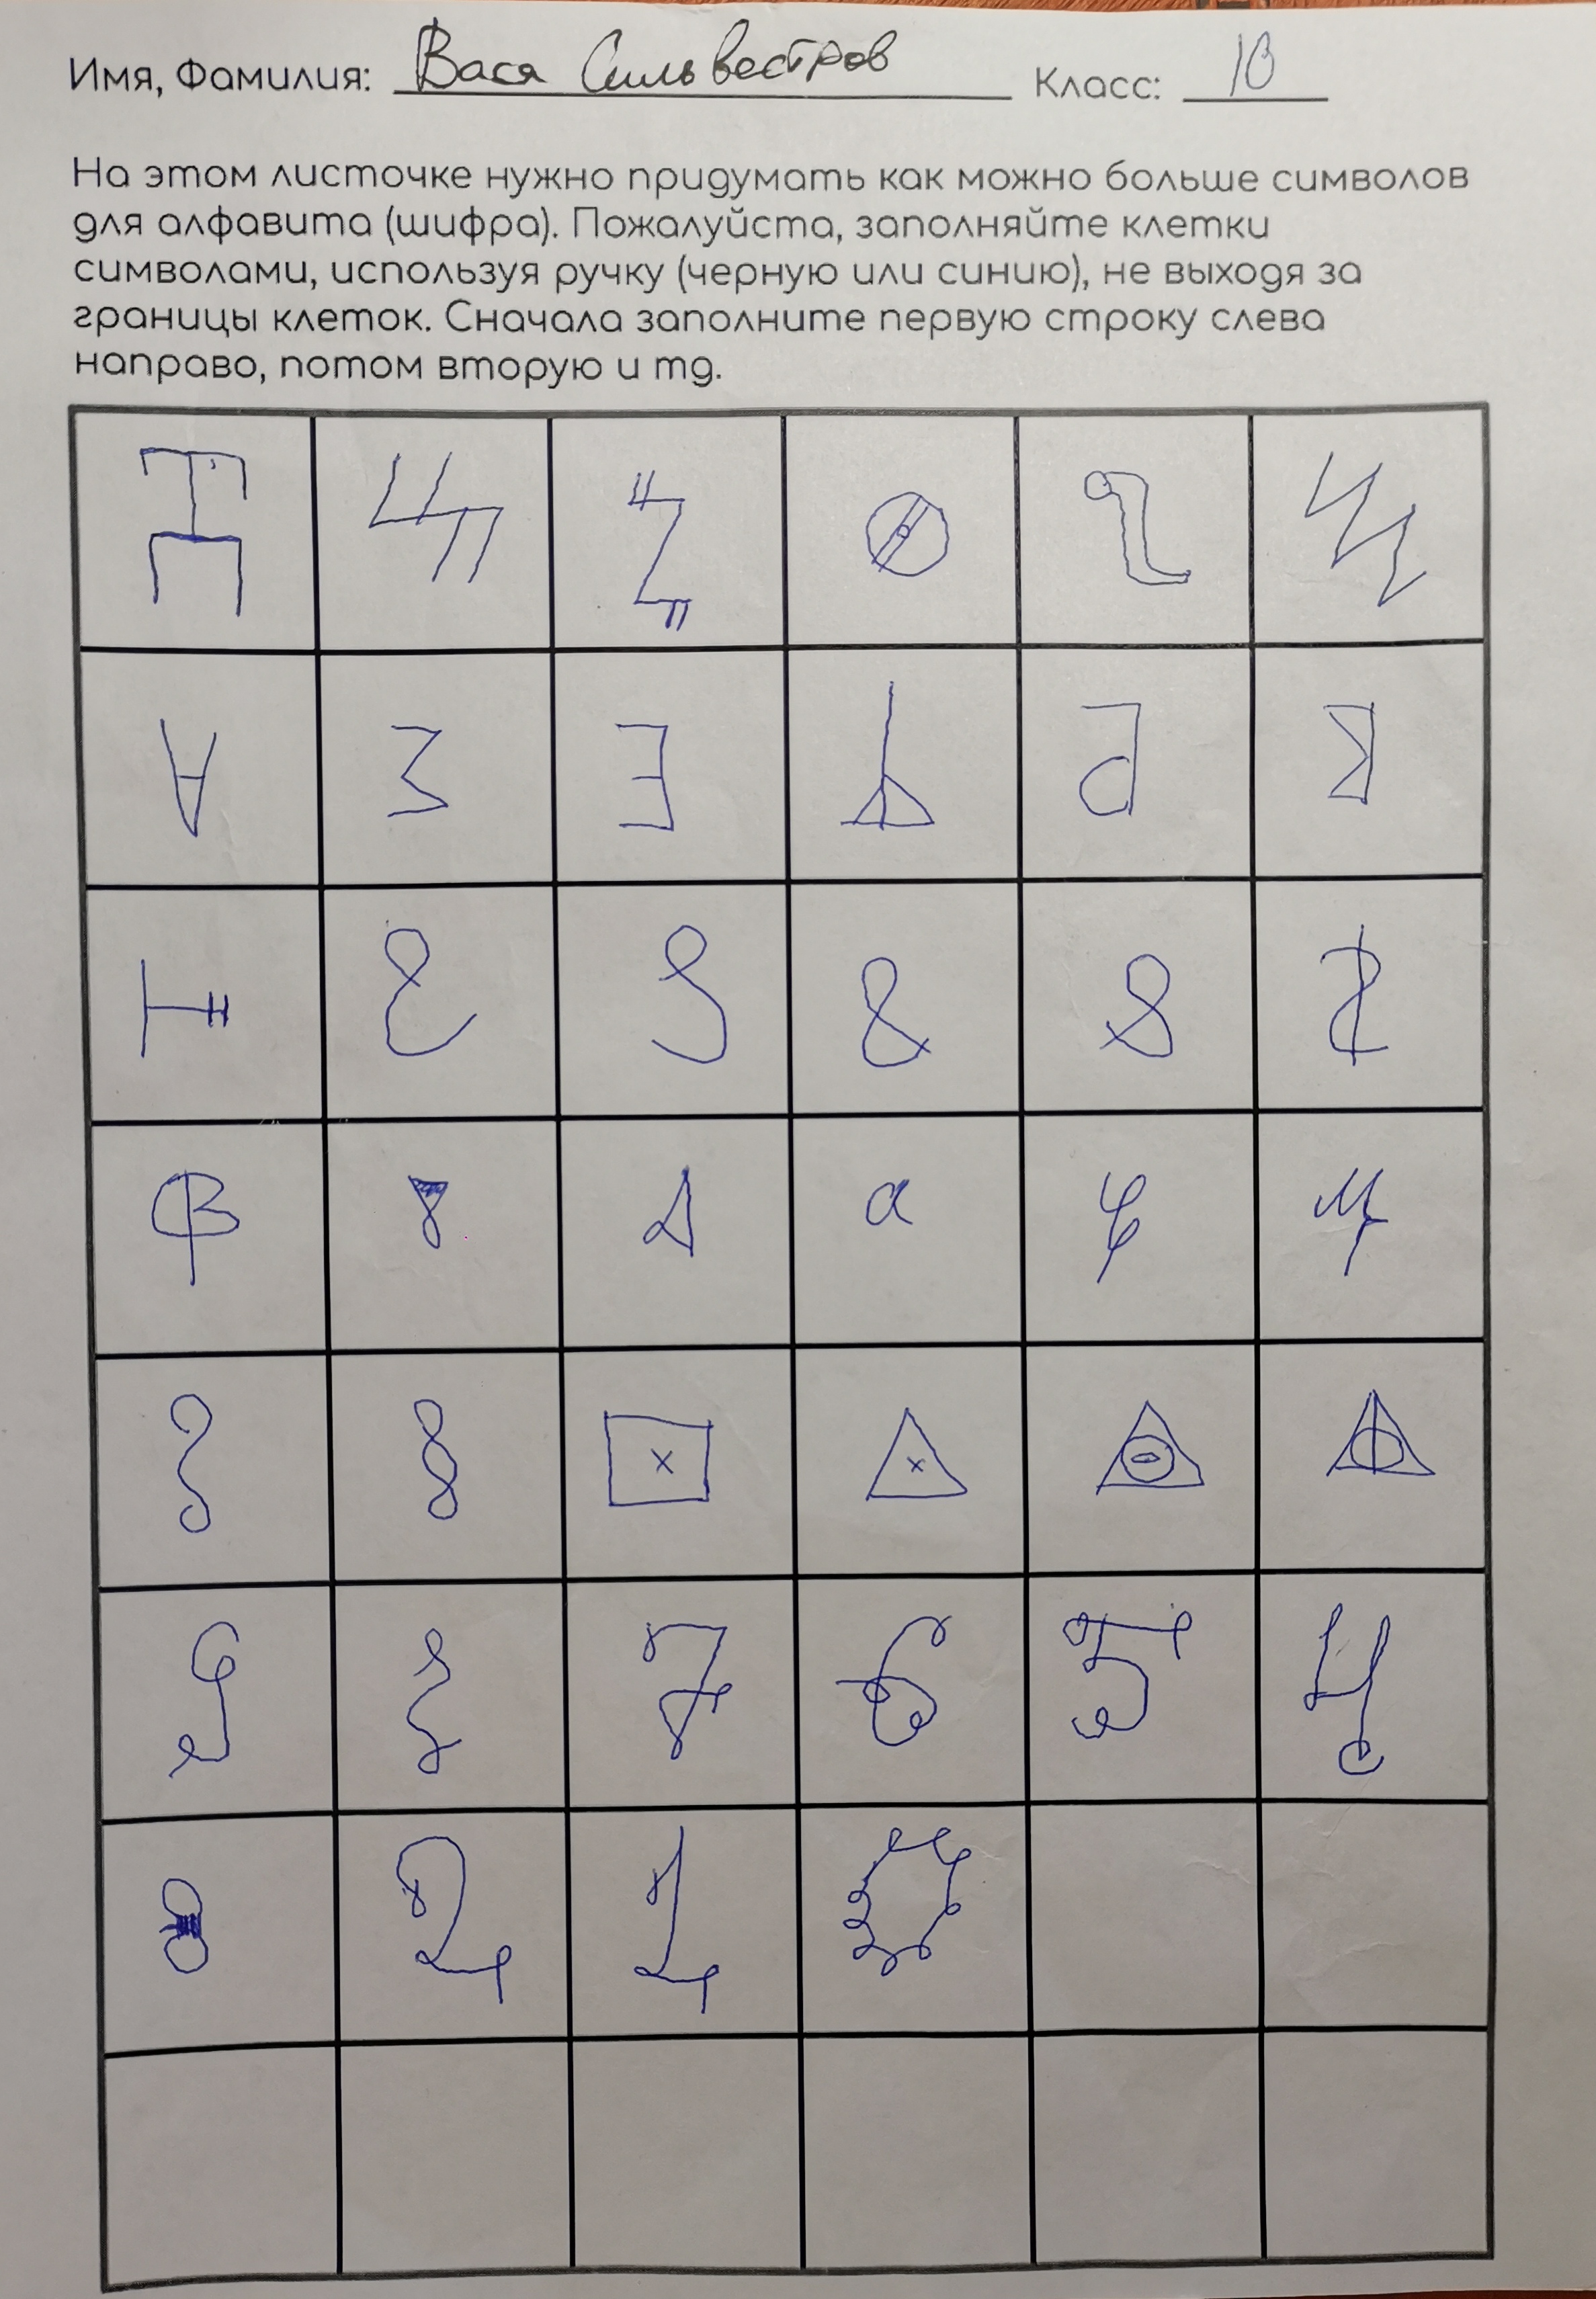 Имя, Фамилия: Вася Сильвестров Класс: 10
На этом листочке нужно придумать как можно больше символов
для алфавита (шифра). Пожалуйста, заполняйте клетки
символами, используя ручку (черную или синию), не выходя за
границы клеток. Сначала заполните первую строку слева
направо, потом вторую и тд.